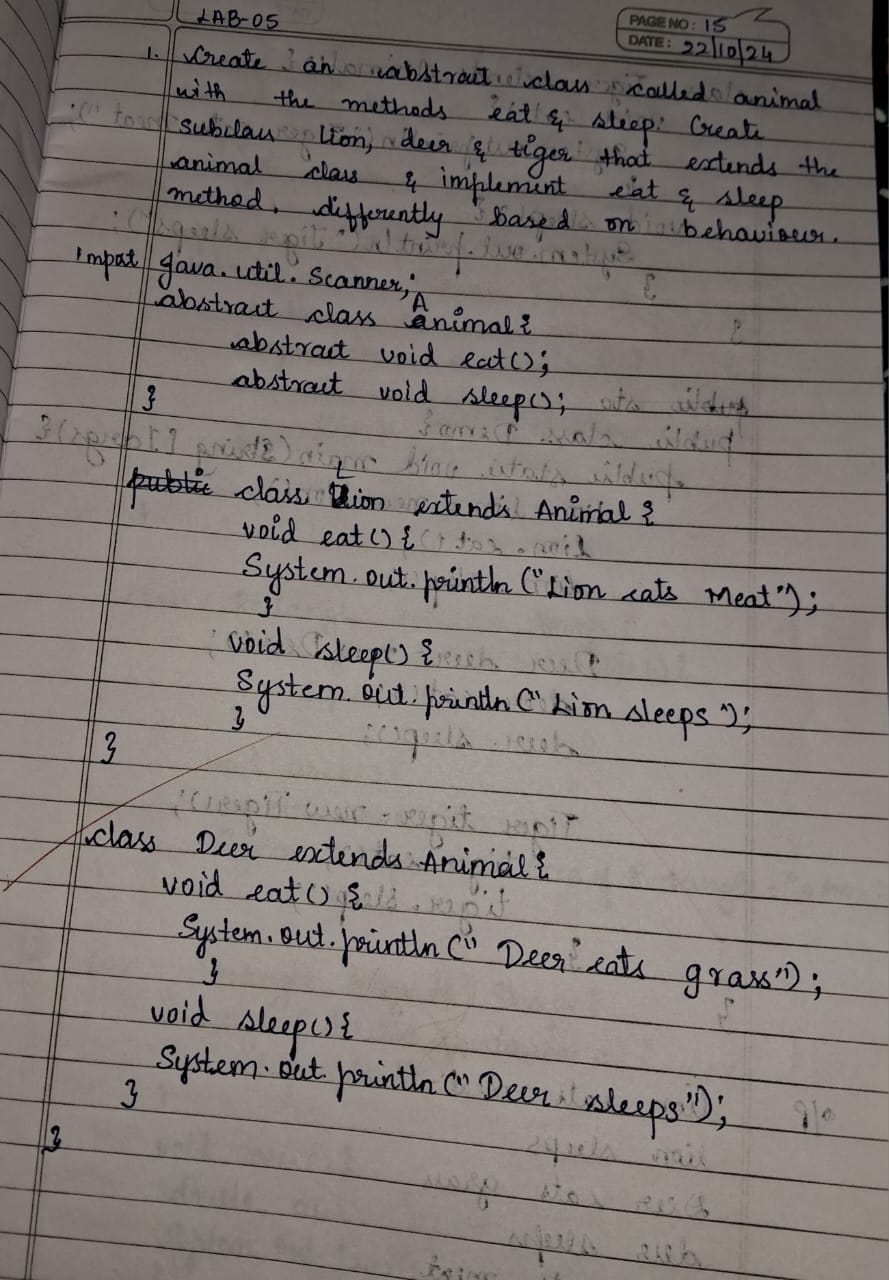 LAB-05
PAGE NO: 15
DATE: 22/10/24
1. Create an abstract class called animal
with the methods eat & sleep. Create
subclass lion, deer & tiger that extends the
animal class & implement eat & sleep
method, differently based on behaviour.
Import java.util.Scanner;
abstract class Animal {
abstract void eat();
abstract void sleep();
}
public class Lion extends Animal {
void eat() {
System.out.println("Lion eats Meat");
}
void sleep() {
System.out.println("Lion sleeps");
}
}
class Deer extends Animal {
void eat() {
System.out.println("Deer eats grass");
}
void sleep() {
System.out.println("Deer sleeps");
}
}